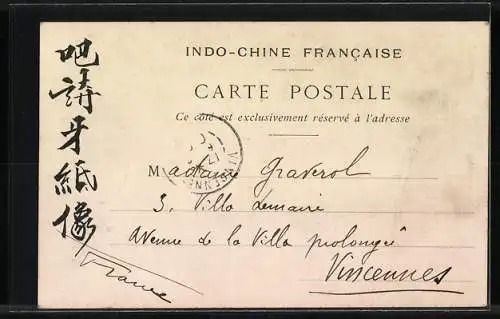 吧請牙紙像
INDO-CHINE FRANÇAISE
CARTE POSTALE
Ce côté est exclusivement réservé à l'adresse
Madame Graverol
3, Villa Lemaire
Avenue de la Villa prolongée
Vincennes
France